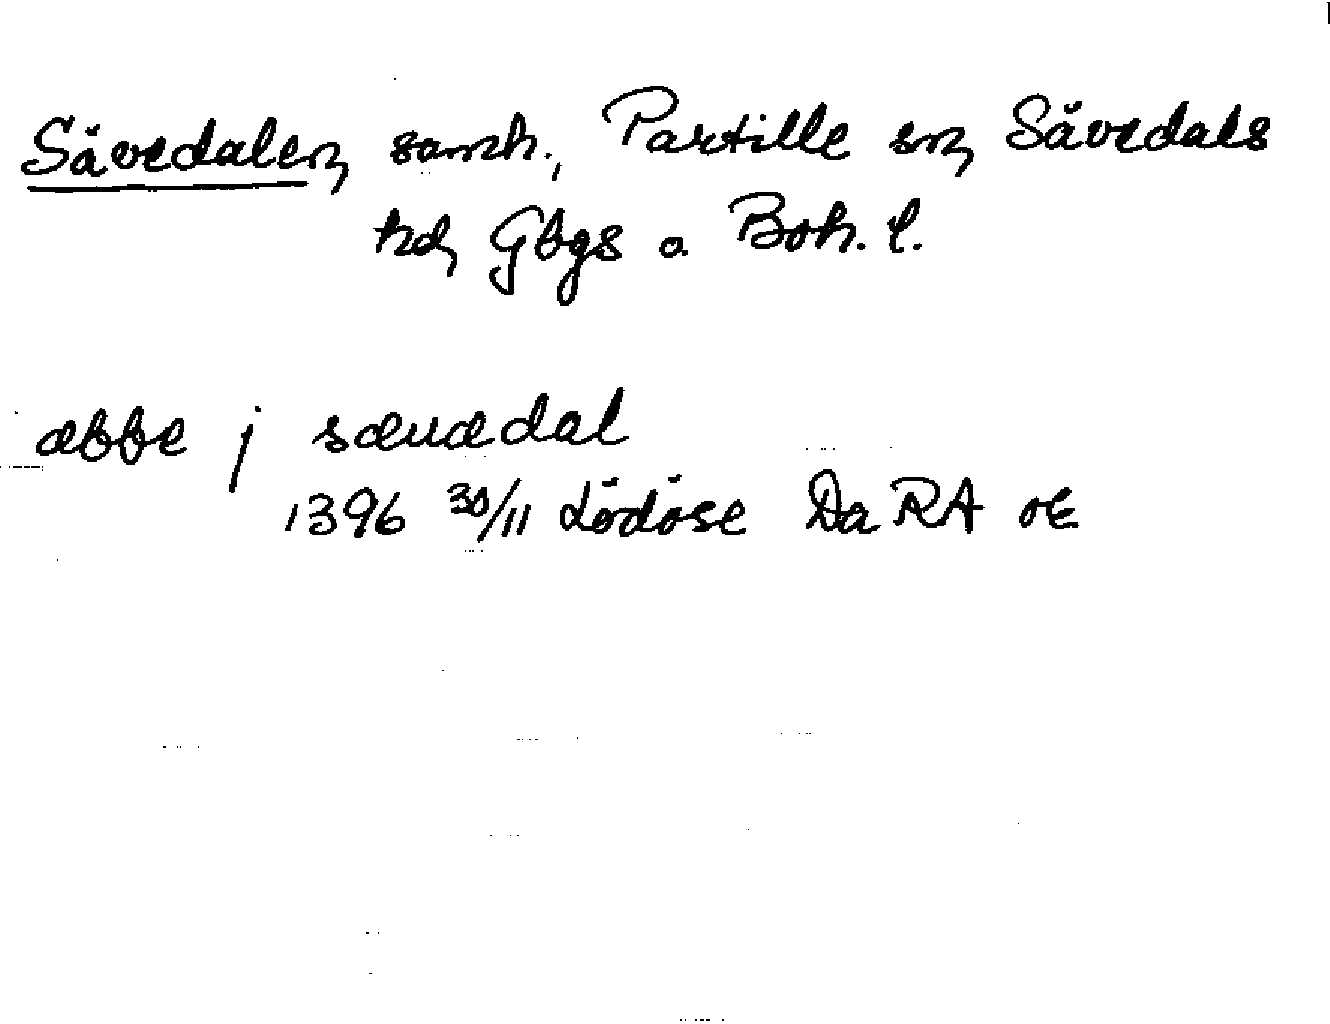 Sävedalen, samh., Partille sn, Sävedals
hd, Gbgs o. Boh. l.
æbbe j sæuædal
1396 30/11 Lödöse Da RA or